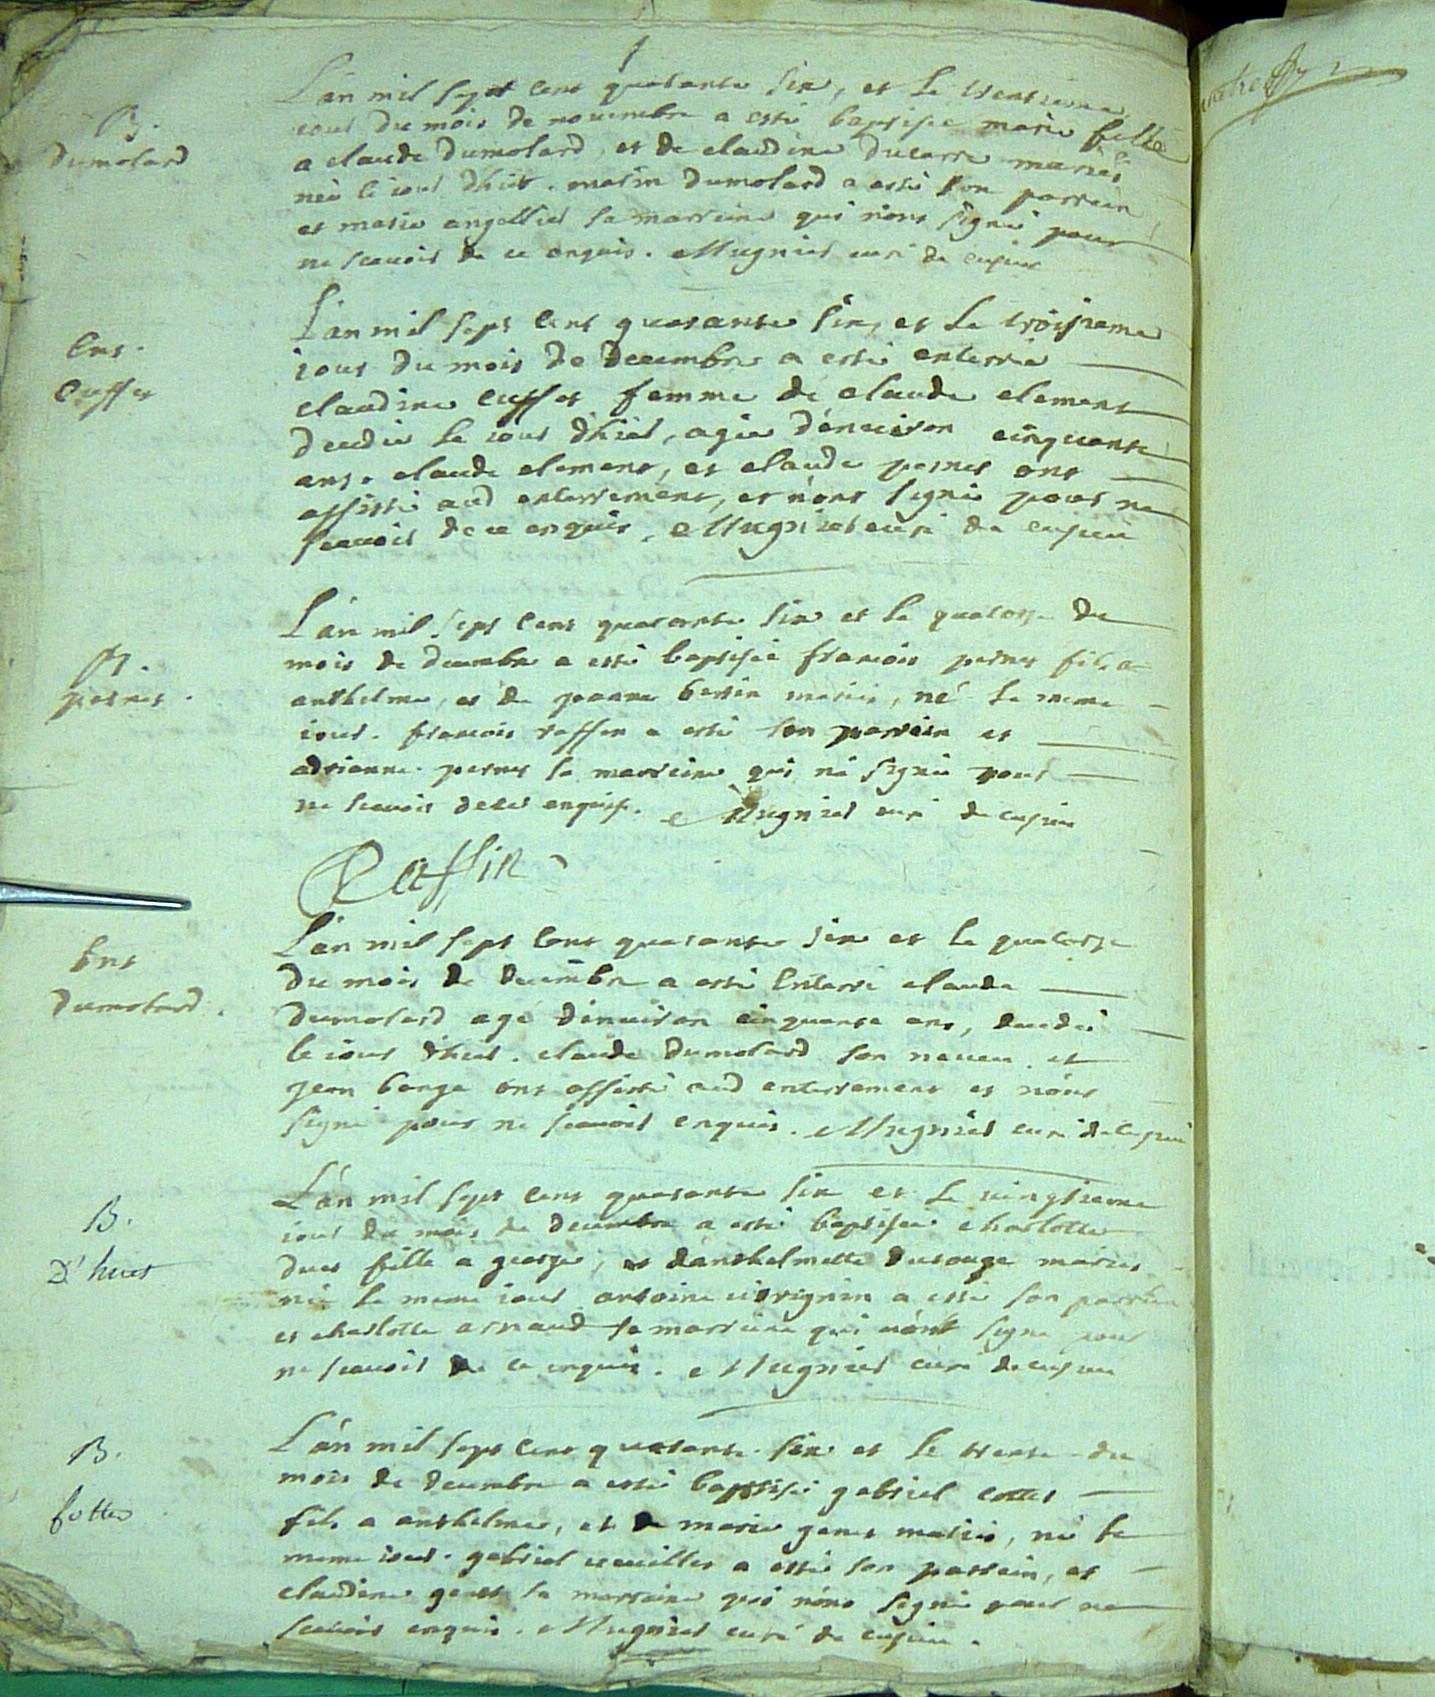 B.
Dumolard
L'an mil sept cent quarante six, et le trentieme
iour du mois de novembre a esté baptisée marie fille
a claude Dumolard, et de claudine Ducarre mariés
née le iour d'hier. marin Dumolard a esté son parrein
et marie angellier sa marreine qui n'ont signé pour
ne scavoir de ce enquis. Mugnier curé de cuzieu
Ent.
Cusset
L'an mil sept cent quarante six, et le troisieme
iour du mois de Decembre a esté enterrée
claudine Cusset femme de claude clement
decedée le iour d'hier, agée d'enuiron cinquante
ans. claude clement, et claude pernet ont
assisté aud enterrement, et n'ont signé pour ne
scavoir de ce enquis. Mugnier curé de cuzieu
B.
pernet.
L'an mil sept cent quarante six et le quatorze du
mois de decembre a esté baptisé francois pernet fils a
anthelme, et de jeanne bertin mariés, né le meme
iour. francois raffin a esté son parrein et
adrienne pernet sa marreine qui n'a signé pour
ne scavoir de ce enquise. Mugnier curé de cuzieu
Raffin
Ent
Dumolard.
L'an mil sept cent quarante six et le quatorze
du mois de decembre a esté Enterré claude
Dumolard agé d'enuiron cinquante ans, decedé
le iour d'hier. claude Dumolard son neueu et
jean barge ont assisté aud enterrement et n'ont
signé pour ne scavoir enquis. Mugnier curé de cuzieu
B.
D'huet
L'an mil sept cent quarante six et le vingtieme
iour du mois de decembre a esté baptisée charlotte
fille a george, et d'anthelmette mariés
née le meme iour antoine a esté son parrein
et charlotte arnaud sa marreine qui n'ont signé pour
ne scavoir de ce enquis. Mugnier curé de cuzieu
B.
Cottet
L'an mil sept cent quarante six et le trente du
mois de decembre a esté baptisé gabriel cottet
fils a anthelme, et de marie genet mariés, né le
meme iour. gabriel a esté son parrein, et
claudine genet sa marreine qui n'ont signé pour ne
scavoir enquis. Mugnier curé de cuzieu.